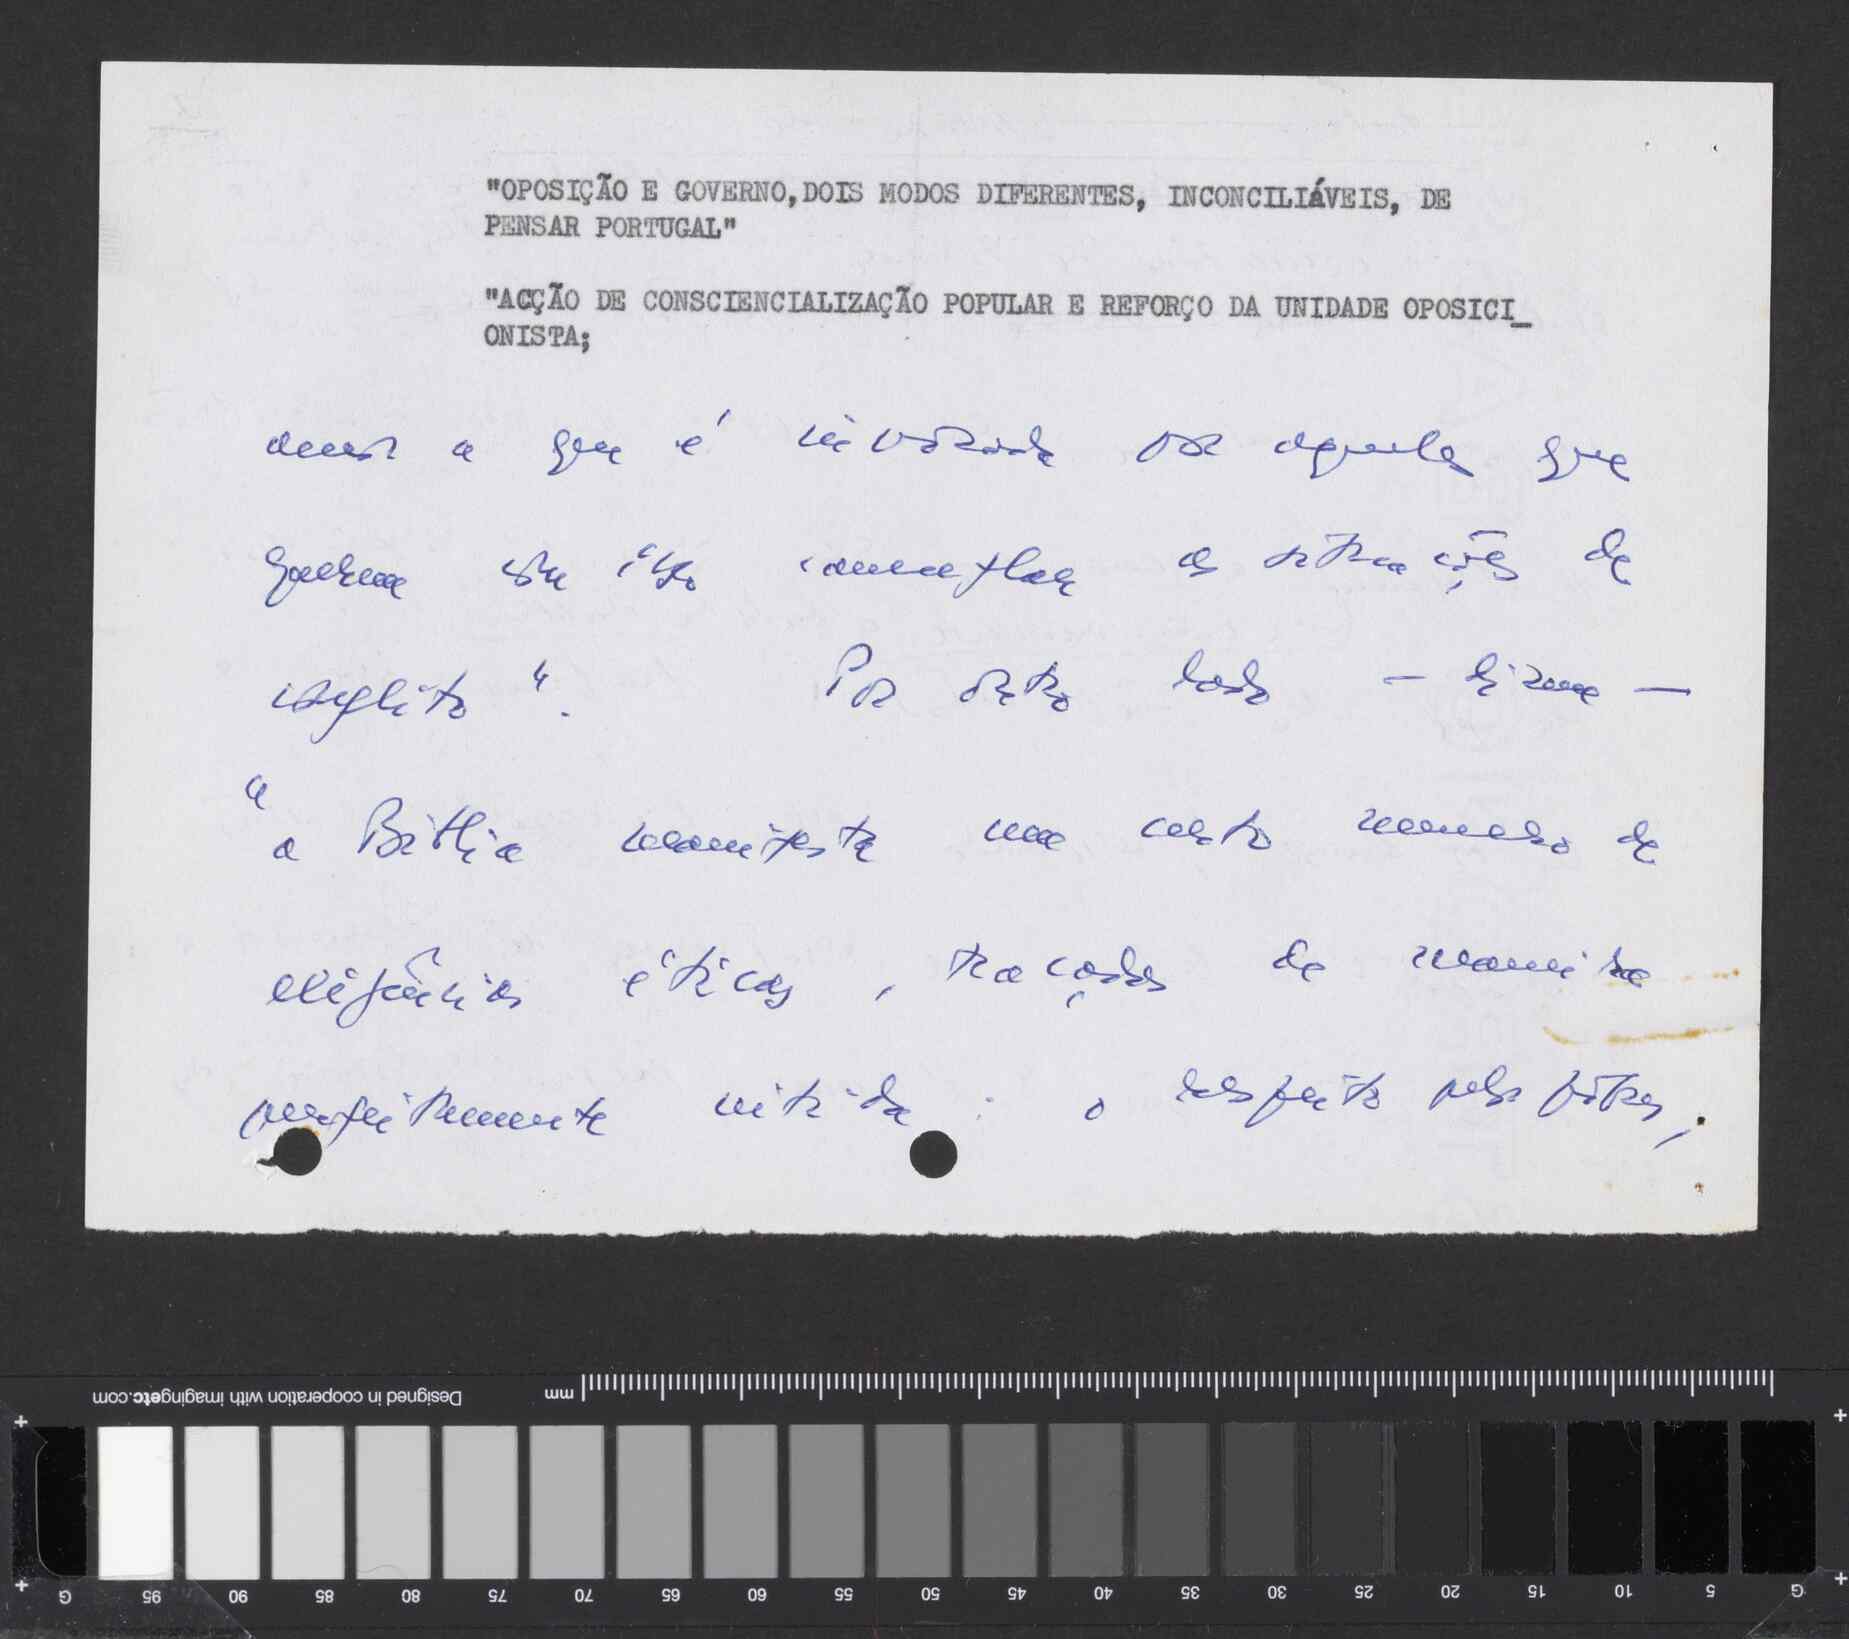 "OPOSIÇÃO E GOVERNO,DOIS MODOS DIFERENTES, INCONCILIÁVEIS, DE
PENSAR PORTUGAL"
"ACÇÃO DE CONSCIENCIALIZAÇÃO POPULAR E REFORÇO DA UNIDADE OPOSICI_
ONISTA;
amor a que é invocado por aqueles que
querem com isso camuflar as situações de
conflito". Por outro lado - dizem -
"a Bíblia manifesta um certo número de
exigências éticas, traçadas de maneira
perfeitamente nítida: o respeito pelos pobres,
Designed in cooperation with imagingetc.com
mm
G 95 90 85 80 75 70 65 60 55 50 45 40 35 30 25 20 15 10 5 G